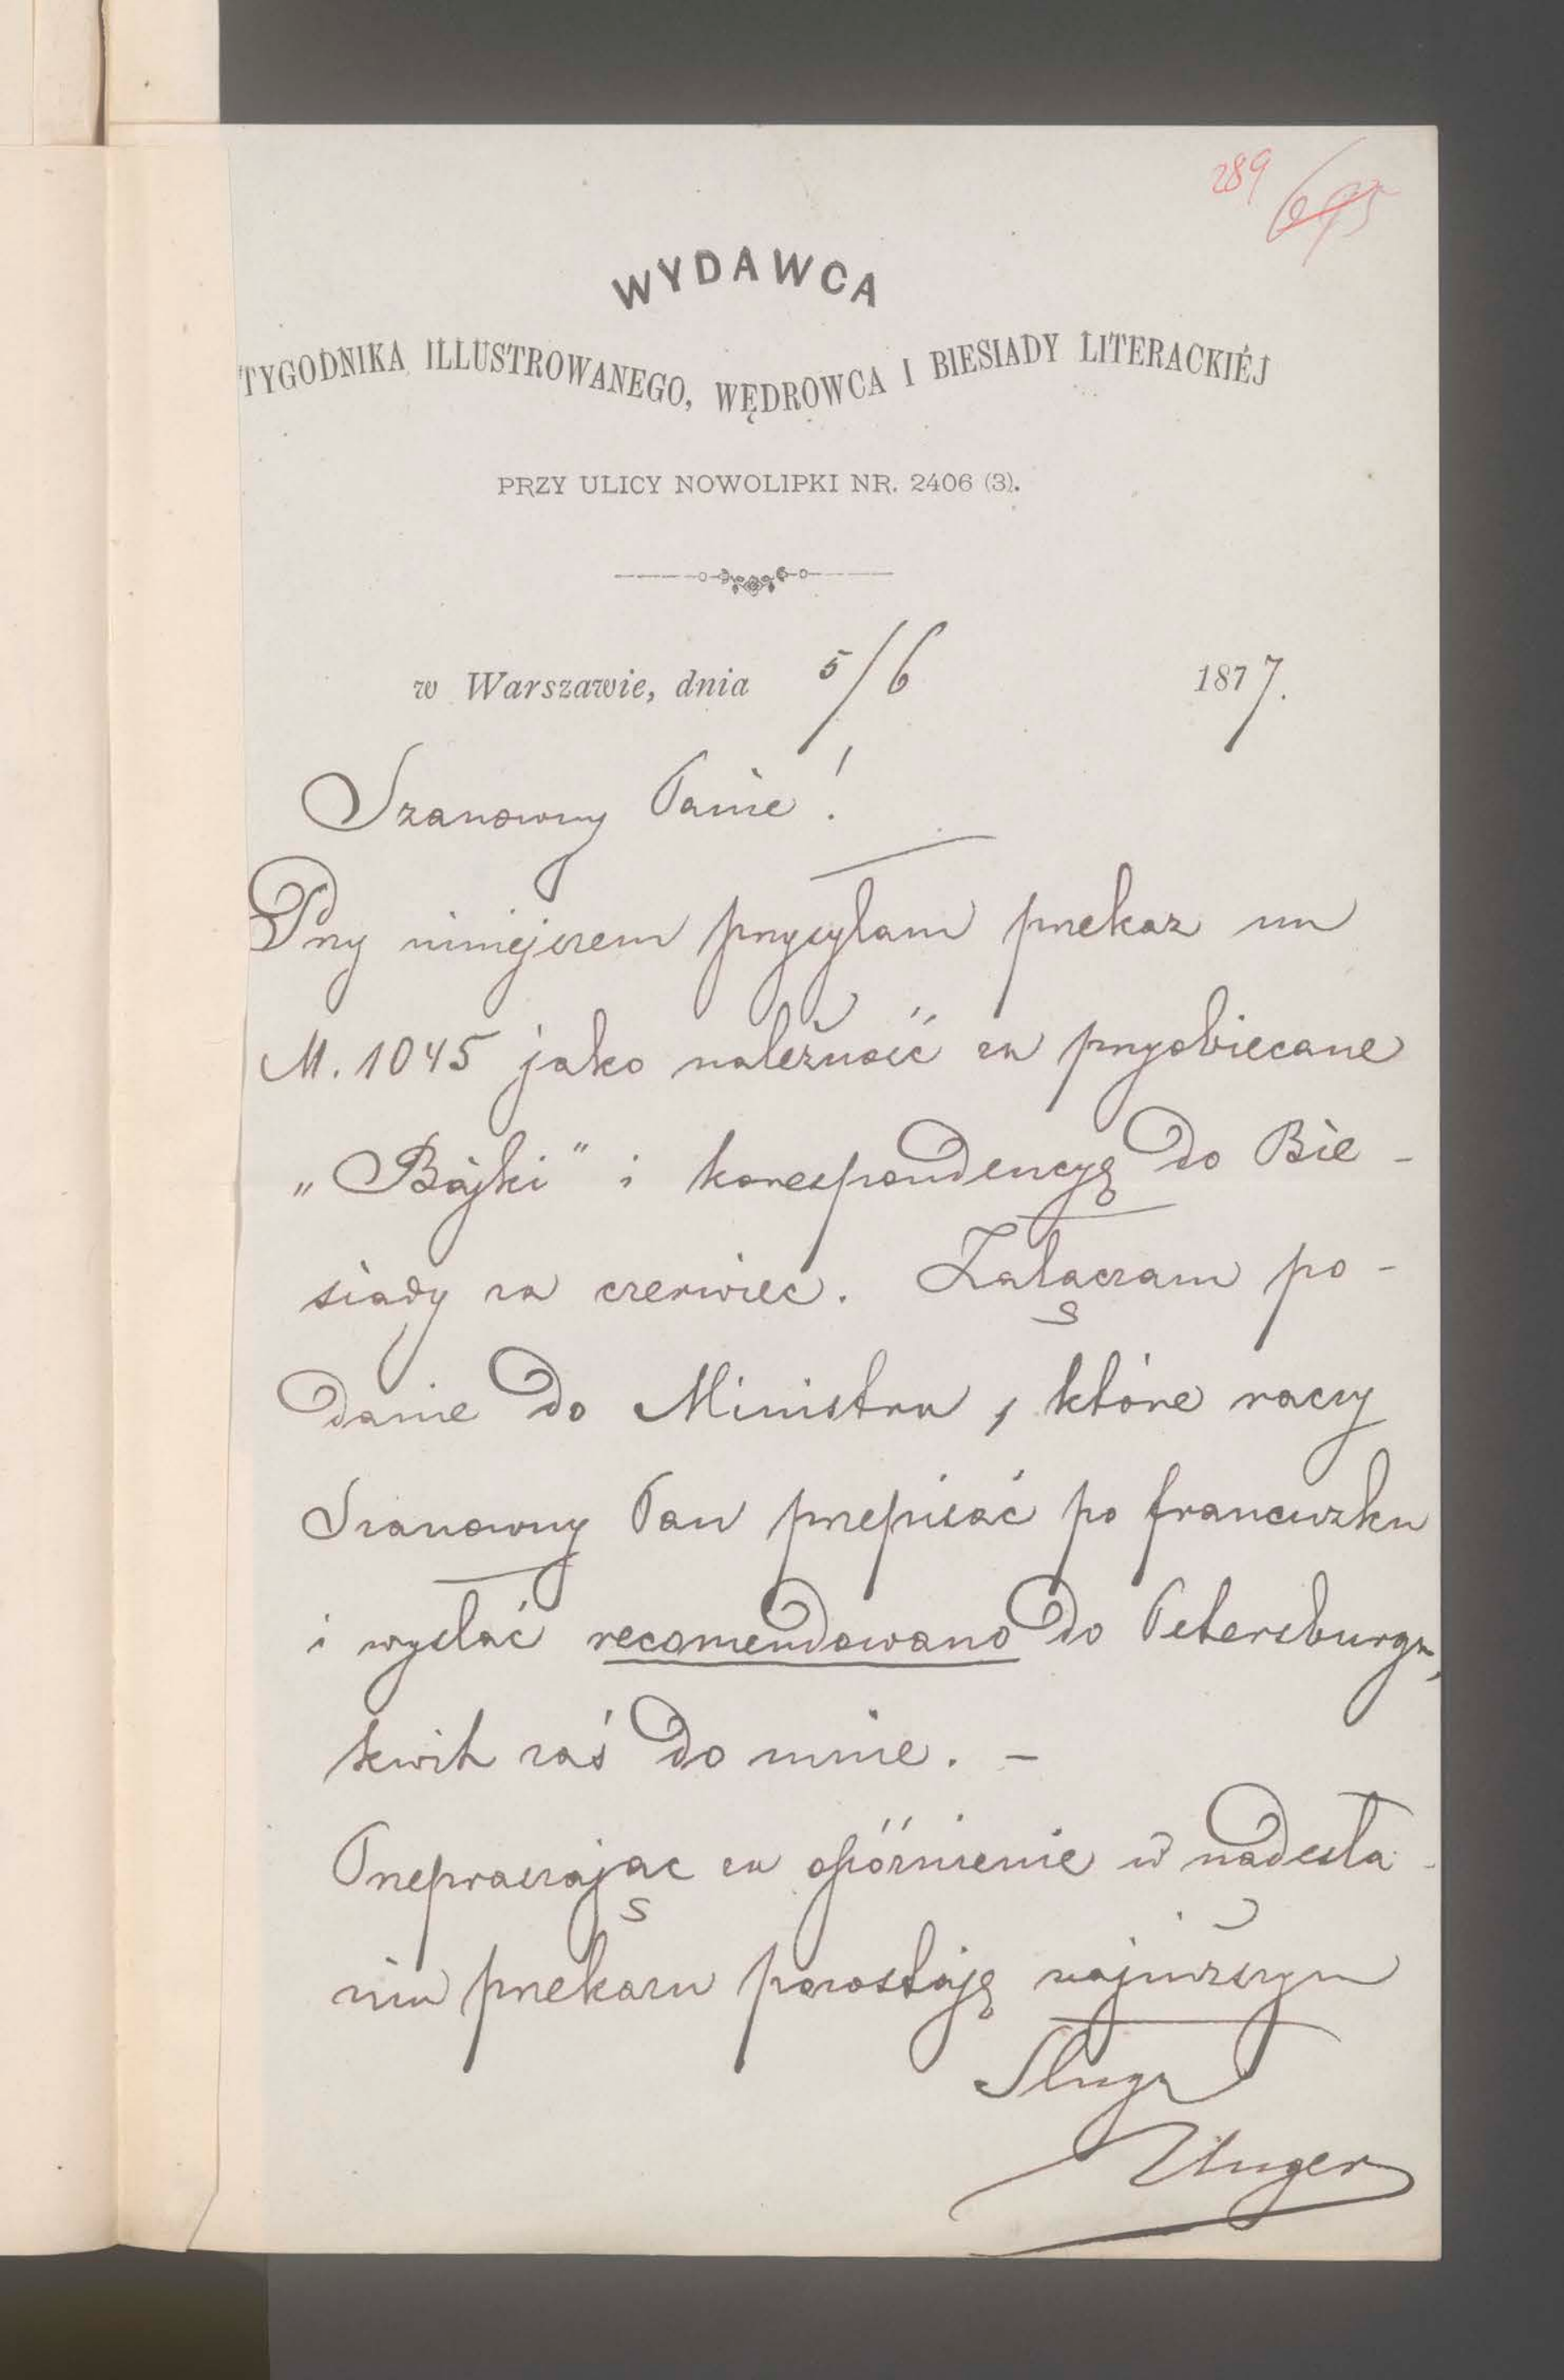 289 695
WYDAWCA
TYGODNIKA ILLUSTROWANEGO, WĘDROWCA I BIESIADY LITERACKIÉJ
PRZY ULICY NOWOLIPKI NR. 2406 (3).
w Warszawie, dnia 5/6 1877.
Szanowny Panie!
Przy niniejszem przysyłam przekaz na
M. 1045 jako należność za przyobiecane
„Bajki" i korespondencyę do Bie-
siady za czerwiec. Załączam po-
danie do Ministra, które raczy
Szanowny Pan przepisać po francuzku
i wysłać recomendowano do Petersburga,
kwit zaś do mnie. -
Przepraszając za opóźnienie w nadesła-
niu przekazu pozostaję najniższym
Sługą
Unger